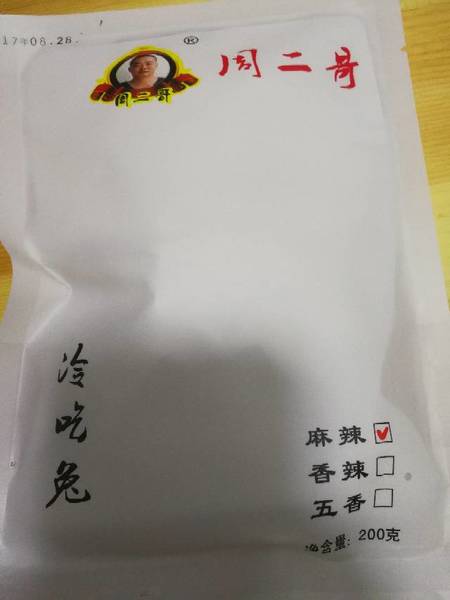 17年08.28.
®
周二哥
周二哥
冷吃兔
麻辣
香辣
五香
净含量:200克